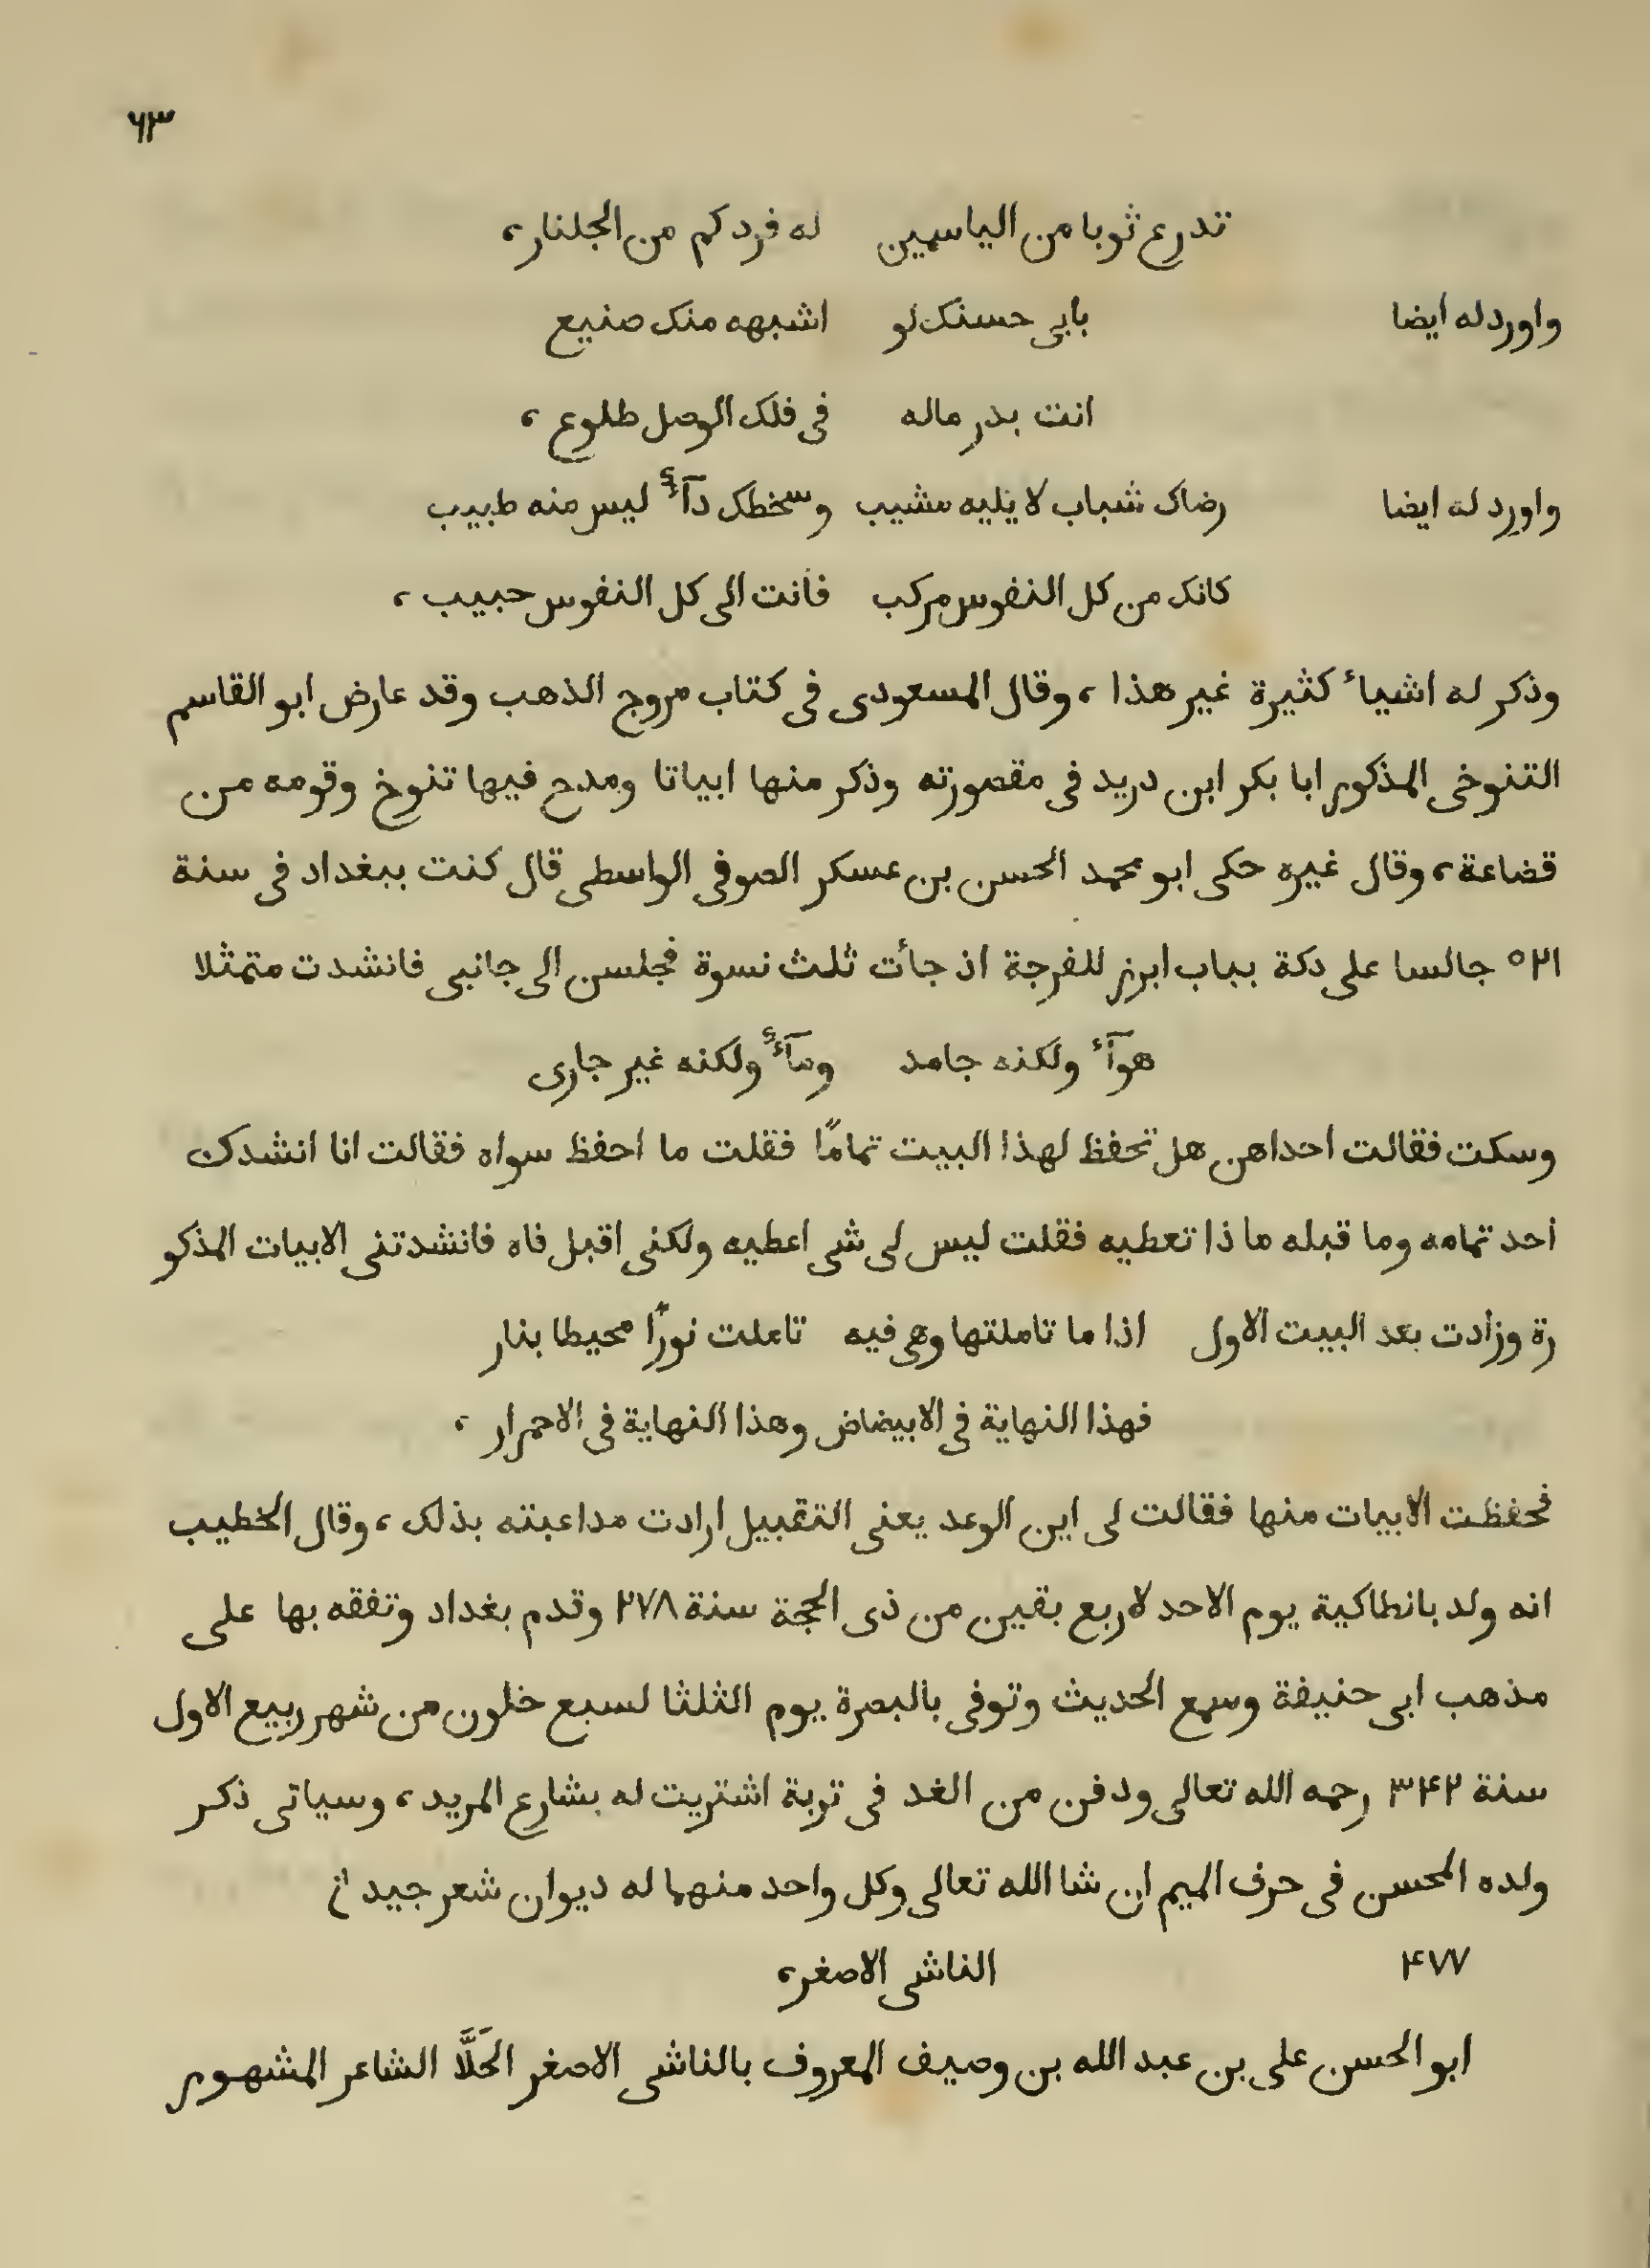 ٦٣
تدرع ثوبا من الياسمين له فرد كم من الجلنار،
واورد له ايضا بابى حسنك لو اشبهه منك صنيع
انت بدر ماله فى فلك الوصل طلوع،
واورد له ايضا رضاك شباب لا يليه مشيب وسخطك دآءٌ ليس منه طبيب
كانك من كل النفوس مركب فانت الى كل النفوس حبيب،
وذكر له اشياء كثيرة غير هذا، وقال المسعودى فى كتاب مروج الذهب وقد عارض ابو القاسم
التنوخى المذكور ابا بكر ابن دريد فى مقصورته وذكر منها ابياتا ومدح فيها تنوخ وقومه من
قضاعة، وقال غيره حكى ابو محمد الحسن بن عسكر الصوفى الواسطى قال كنت ببغداد فى سنة
٥٢١ جالسا على دكة بباب ابرز للفرجة اذ جأت ثلث نسوة فجلسن الى جانبى فانشدت متمثلا
هوآء ولكنه جامد ومآءٌ ولكنه غير جارى
وسكت فقالت احداهن هل تحفظ لهذا البيت تمامًا فقلت ما احفظ سواه فقالت انا انشدك
احد تمامه وما قبله ما ذا تعطيه فقلت ليس لى شى اعطيه ولكنى اقبل فاه فانشدتنى الابيات المذكو
رة وزادت بعد البيت الاول اذا ما تاملتها وهى فيه تاملت نورًا محيطا بنار
فهذا النهاية فى الابيضاض وهذا النهاية فى الاحمرار،
فحفظت الابيات منها فقالت لى اين الوعد يعنى التقبيل ارادت مداعبته بذلك، وقال الخطيب
انه ولد بانطاكية يوم الاحد لاربع بقين من ذى الحجة سنة ٢٧٨ وقدم بغداد وتفقه بها على
مذهب ابى حنيفة وسمع الحديث وتوفى بالبصرة يوم الثلثا لسبع خلون من شهر ربيع الاول
سنة ٣۴٢ رحمه الله تعالى ودفن من الغد فى تربة اشتريت له بشارع المربد، وسياتى ذكر
ولده المحسن فى حرف الميم ان شا الله تعالى وكل واحد منهما له ديوان شعر جيد
۴٧٧ الناشى الاصغر،
ابو الحسن على بن عبد الله بن وصيف المعروف بالناشى الاصغر الحَلَّا الشاعر المشهور